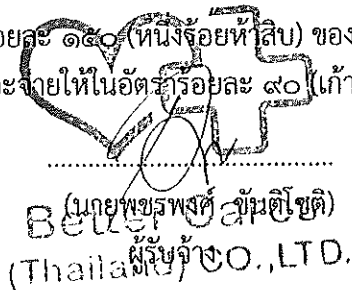 อยละ ๑๕๐ (หนึ่งร้อยห้าสิบ) ของ
ะจ่ายให้ในอัตราร้อยละ ๙๐ (เก้า
(นายพชรพงศ์ ขันติโชติ)
Better Care
ผู้รับจ้าง
(Thailand) CO.,LTD.